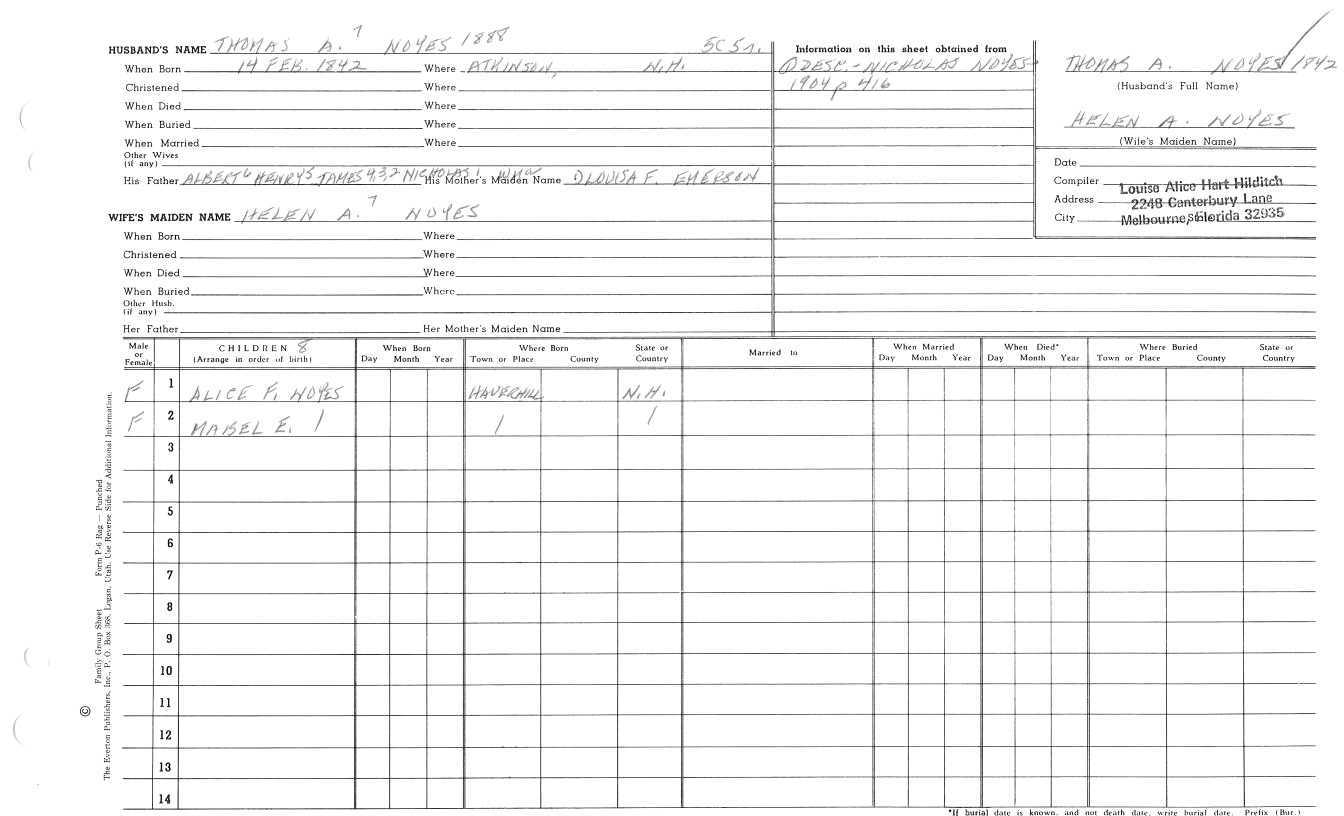 HUSBAND'S NAME THOMAS A.7 NOYES 1888 5C 51.
When Born 14 FEB. 1842 Where ATKINSON, N.H.
Christened Where
When Died Where
When Buried Where
When Married Where
Other Wives
(if any)
His Father ALBERT6 HENRY5 JAMES4,3,2 NICHOLAS1 His Mother's Maiden Name ① LOUISA F. EMERSON
WIFE'S MAIDEN NAME HELEN A.7 NOYES
When Born Where
Christened Where
When Died Where
When Buried Where
Other Husb.
(if any)
Her Father Her Mother's Maiden Name
Information on this sheet obtained from
① DESC.-NICHOLAS NOYES-
1904 p 416
THOMAS A. NOYES 1842
(Husband's Full Name)
HELEN A. NOYES
(Wife's Maiden Name)
Date
Compiler Louise Alice Hart Hilditch
Address 2248 Canterbury Lane
City State Melbourne, Florida 32935
Male or Female
CHILDREN 8
(Arrange in order of birth)
When Born
Day Month Year
Where Born
Town or Place County
State or Country
Married to
When Married
Day Month Year
When Died*
Day Month Year
Where Buried
Town or Place County
State or Country
F 1 ALICE F. NOYES HAVERHILL N.H.
F 2 MABEL E. / / /
3
4
5
6
7
8
9
10
11
12
13
14
*If burial date is known, and not death date, write burial date. Prefix (Bur.)
Family Group Sheet Form P-6 Rag — Punched
© The Everton Publishers, Inc., P. O. Box 368, Logan, Utah. Use Reverse Side for Additional Information.